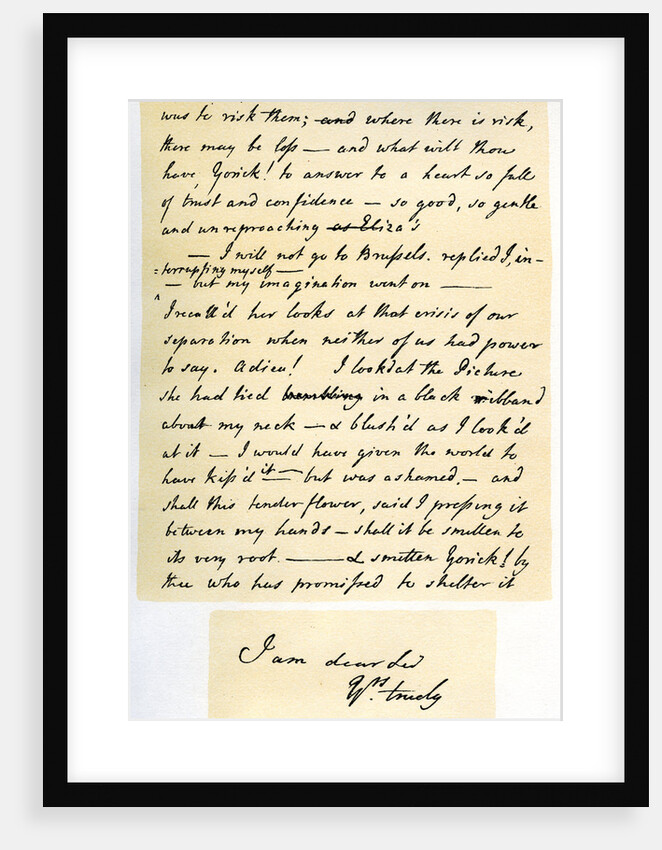 was to risk them; and where there is risk,
there may be loss — and what wilt thou
have, Yorick! to answer to a heart so full
of trust and confidence — so good, so gentle
and unreproaching as Eliza's
— I will not go to Brussels. replied I, in-
=terrupting myself —
— but my imagination went on —
^
I recall'd her looks at that crisis of our
separation when neither of us had power
to say. Adieu! I look'd at the Picture
she had tied in a black ribband
about my neck — & blush'd as I look'd
at it — I would have given the world to
have kiss'd it — but was ashamed. — and
shall this tender flower, said I pressing it
between my hands — shall it be smitten to
its very root. — & smitten Yorick! by
thee who has promissed to shelter it
I am dear Sir
Yrs. truely